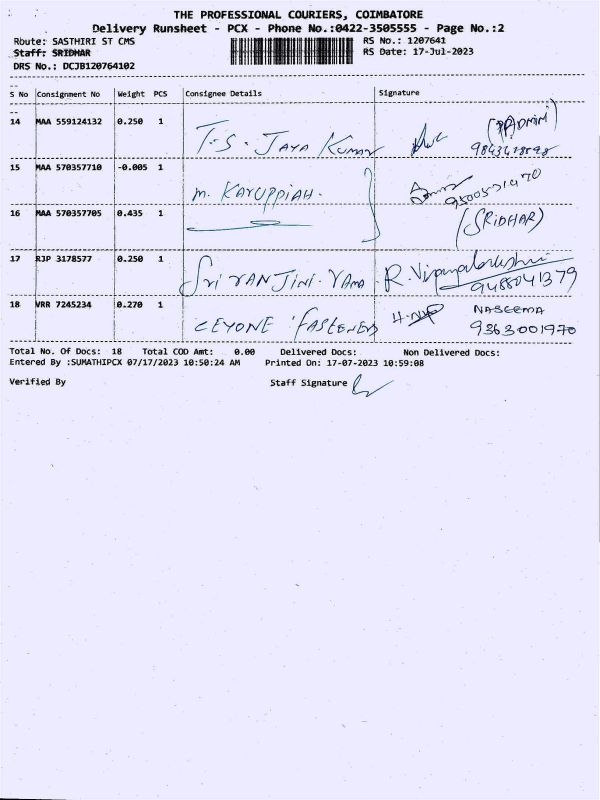 THE PROFESSIONAL COURIERS, COIMBATORE
Delivery Runsheet - PCX - Phone No.:0422-3505555 - Page No.:2
Route: SASTHIRI ST CMS RS No.: 1207641
Staff: SRIDHAR RS Date: 17-Jul-2023
DRS No.: DCJB120764102
S No Consignment No Weight PCS Consignee Details Signature
14 MAA 559124132 0.250 1 T.S. JAYA KUMAR
15 MAA 570357710 -0.005 1 M. KARUPPIAH. 9500531470
16 MAA 570357705 0.435 1 (SRIDHAR)
17 RJP 3178577 0.250 1 Sri RANJINI. R. 9488041379
18 VRR 7245234 0.270 1 CEYONE FASTENERS NASEEMA
9363001970
Total No. Of Docs: 18 Total COD Amt: 0.00 Delivered Docs: Non Delivered Docs:
Entered By :SUMATHIPCX 07/17/2023 10:50:24 AM Printed On: 17-07-2023 10:59:08
Verified By Staff Signature